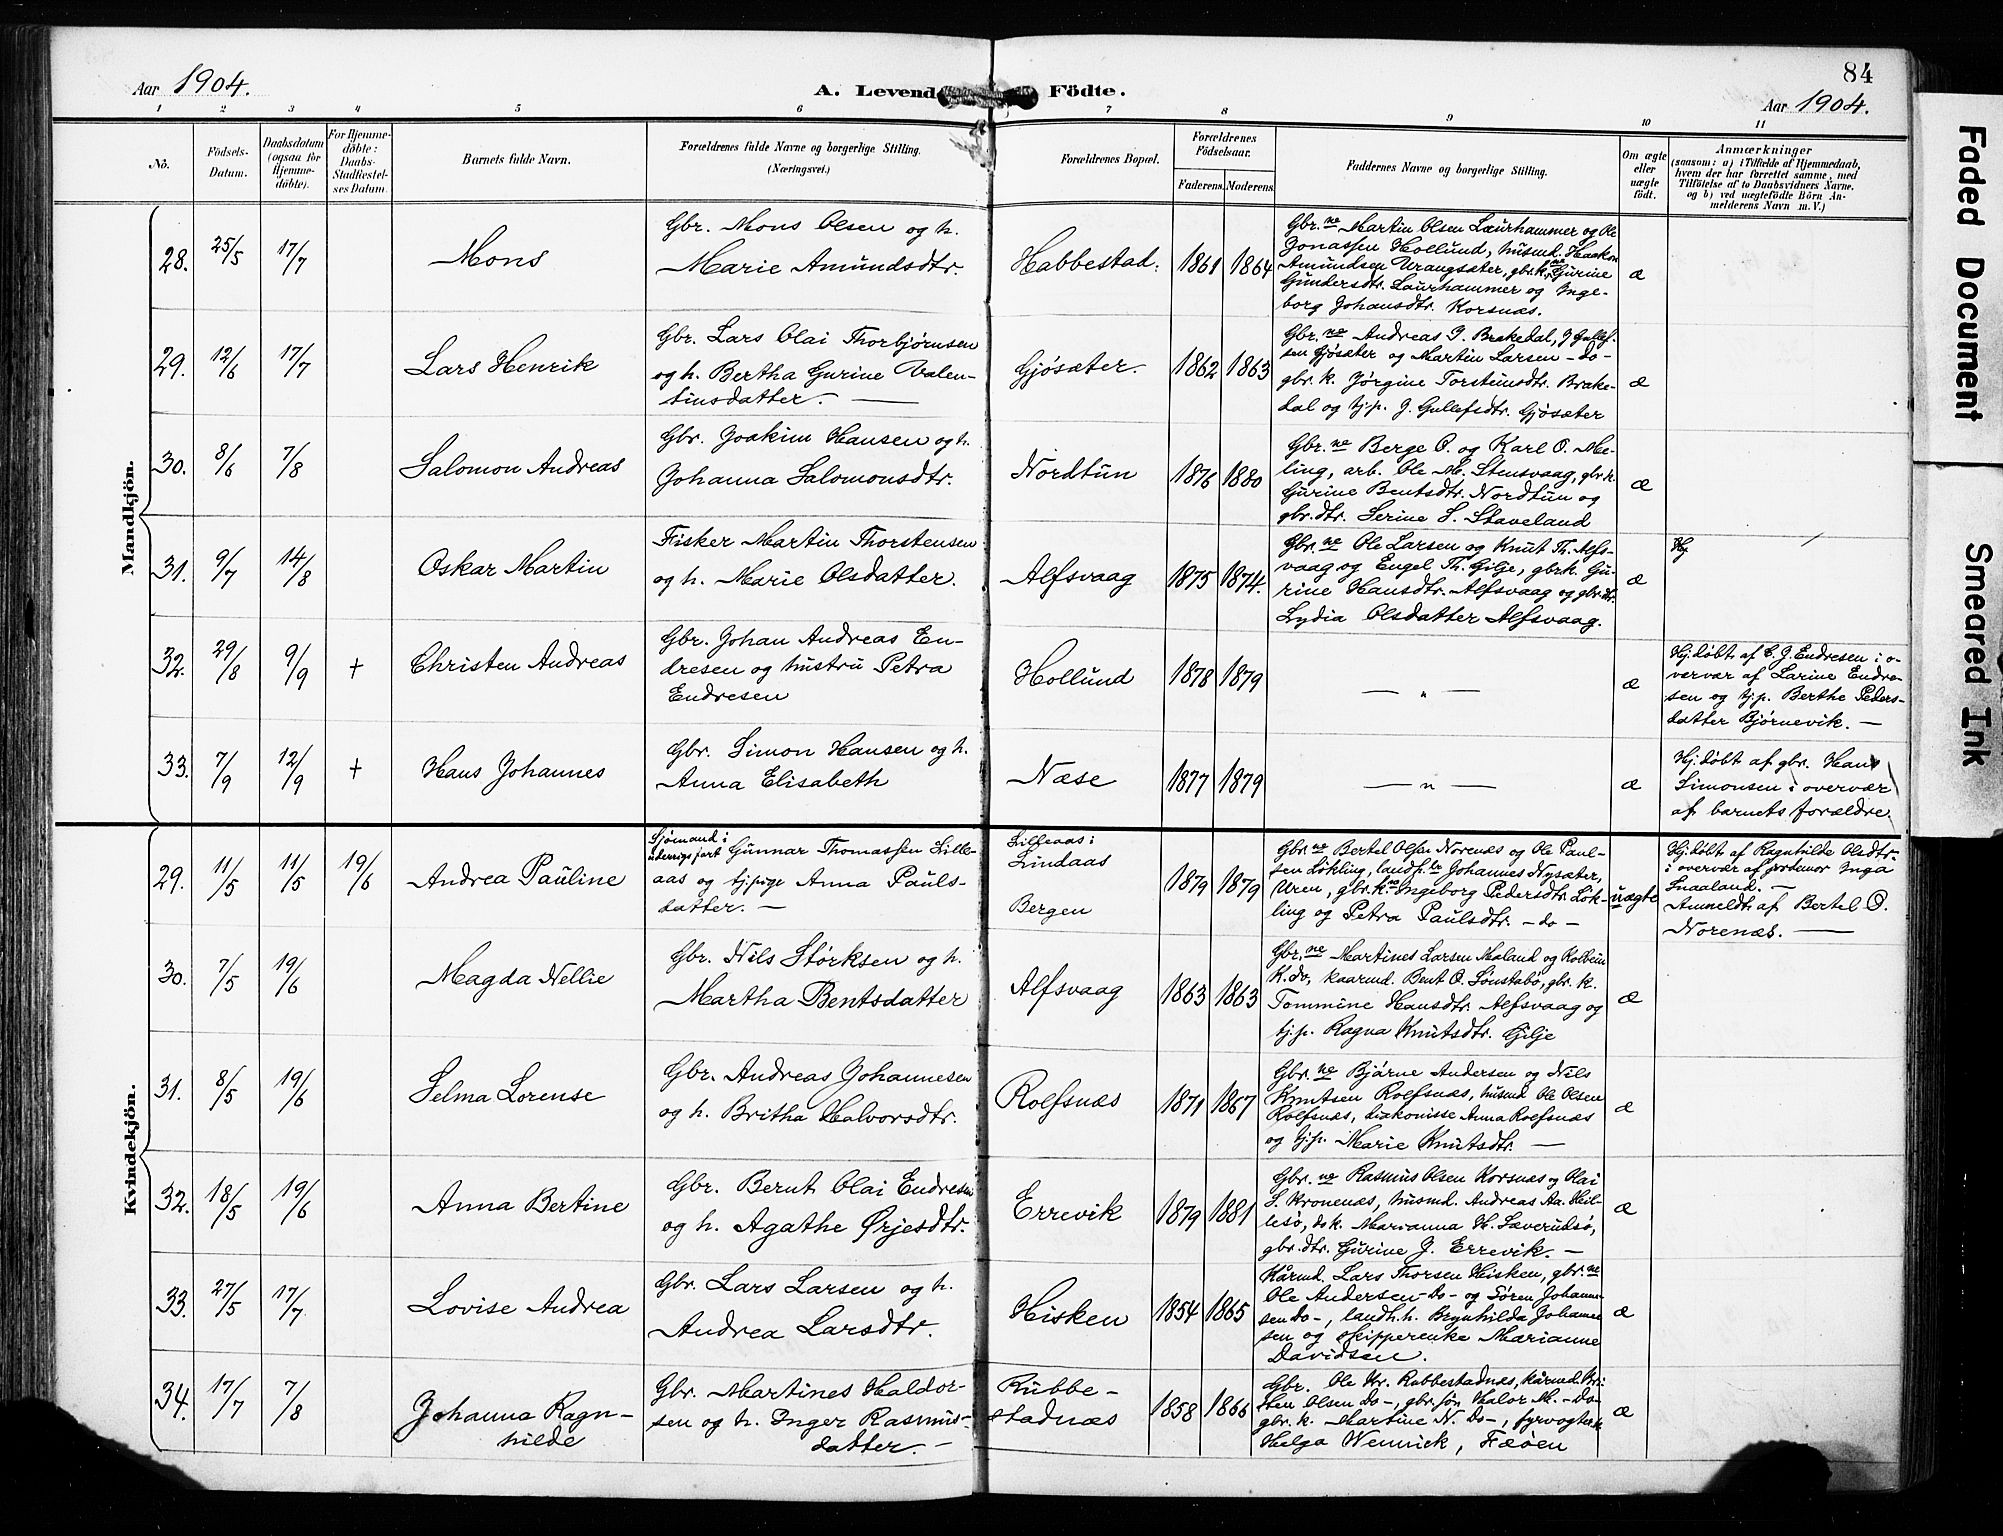 84
Aar 1904.
A. Levend Födte.
Aar 1904.
1 2 3 4 5 6 7 8 9 10 11
No.
Födsels-
Datum.
Daabsdatum
(ogsaa for
Hjemme-
döbte).
For Hjemme-
döbte:
Daabs-
Stadfæstel-
ses Datum.
Barnets fulde Navn.
Forældrenes fulde Navne og borgerlige Stilling.
(Næringsvei.)
Forældrenes Bopæl.
Forældrenes
Födselsaar.
Faderens. Moderens.
Faddernes Navne og borgerlige Stilling.
Om ægte
eller
uægte
født.
Anmærkninger
(saasom: a) i Tilfælde af Hjemmedaab,
hvem der har forrettet samme, med
Tilföielse af to Daabsvidners Navne.
og b) ved uægtefödte Börn An-
melderens Navn m. V.)
Mandkjön.
28. 25/5 17/7
Mons
Gbr. Mons Olsen og h.
Marie Amundsdtr.
Habbestad.
1861 1864
Gbr.ne Martin Olsen Laurhammer og Ole
Jonassen Hollund, husmd. Haakon
Amundsen Vrangsæter, gbr.k.ne Gurine
Gundersdtr. Laurhammer og Inge-
borg Johansdtr. Korsnæs.
æ
29. 12/6 17/7
Lars Henrik
Gbr. Lars Olai Thorbjørnsen
og h. Bertha Gurine Valen-
tinsdatter. —
Gjøsæter.
1862 1863
Gbr.ne Andreas J. Brakedal, J Gullef-
sen Gjøsæter og Martin Larsen - do -
gbr. k. Jørgine Torsteinsdtr. Brake-
dal og tj.p. J. Gullefsdtr. Gjøsæter
æ
30. 8/6 7/8
Salomon Andreas
Gbr. Joakim Hansen og h.
Johanna Salomonsdtr.
Nordtun
1876 1880
Gbr.ne Berge O. og Karl O. Me-
ling, arb. Ole M. Stensvaag, gbr.k.
Gurine Bentsdtr. Nordtun og
gbr.dtr. Serine S. Staveland
æ
31. 9/7 14/8
Oskar Martin
Fisker Martin Thorstensen
og h. Marie Olsdatter.
Alfsvaag
1875 1874.
Gbr.ne Ole Larsen og Knut Th. Alfs-
vaag og Engel Th. Gilje, gbr.k. Gu-
rine Hansdtr. Alfsvaag og gbr.dtr.
Lydia Olsdatter Alfsvaag.
æ
Hj
32. 29/8 9/9 +
Christen Andreas
Gbr. Johan Andreas En-
dresen og hustru Petra
Endresen
Hollund
1878 1879
— " —
æ
Hj.døbt af C. J. Endresen i o-
vervær af Larine Endre-
sen og tj.p. Berthe Peders-
datter Bjørnevik. —
33. 7/9 12/9 +
Hans Johannes
Gbr. Simon Hansen og h.
Anna Elisabeth
Næse
1877 1879
— " —
æ
Hj.døbt af gbr. Hans
Simonsen i overvær
af barnets forældre.
Kvindekjön.
29. 11/5 11/5 19/6
Andrea Pauline
Sjømand i
udenrigsfart Gunnar Thomassen Lille-
aas og tj.pige Anna Pauls-
datter. —
Lilleaas i
Lindaas
Bergen
1879 1879
Gbr.ne Bertel Olsen Norenæs og Ole Paul-
sen Løkling, landh. Johannes Nysæter,
Uren, gbr.k.ne Ingeborg Pedersdtr. Løk-
ling og Petra Paulsdtr. - do -
uægte
Hj.døbt af Ragnhilde Olsdtr.
i overvær af jordemor Inga
Snaaland. —
Anmeldt af Bertel O.
Norenæs. —
30. 7/5 19/6
Magda Nellie
Gbr. Nils Størksen og h.
Martha Bentsdatter
Alfsvaag
1863 1863
Gbr.ne Martines Larsen Maland og Kolbein
K. do, kaarmd. Bent O. Sønstabø, gbr. k.
Tommine Hansdtr. Alfsvaag og
tj.p. Ragna Knutsdtr. Gilje
æ
31. 8/5 19/6
Selma Lorense
Gbr. Andreas Johannesen
og h. Britha Halvorsdtr.
Rolfsnæs
1871 1867
Gbr.ne Bjarne Andersen og Nils
Knutsen Rolfsnæs, husmd Ole Olsen
Rolfsnæs, diakonisse Anna Rolfsnæs
og tj.p. Marie Knutsdtr. —
æ
32. 18/5 19/6
Anna Bertine
Gbr. Bernt Olai Endresen
og h. Agathe Ørjesdtr.
Errevik
1879 1881
Gbr.ne Rasmus Olsen Korsnæs og Olai
S. Kronenæs, husmd. Andreas Aa. Heil-
lesø, do k. Marianna H. Sæverudsø,
gbr.dtr. Gurine J. Errevik. —
æ
33. 27/5 17/7
Lovise Andrea
Gbr. Lars Larsen og h.
Andrea Larsdtr.
Hisken
1854 1865
Kårmd. Lars Thorsen Hisken, gbr.ne
Ole Andersen - Do - og Søren Johanne-
sen do -, landh.h. Brynhilda Johanne
sen og skipperenke Marianne
Davidsen.
æ
34. 17/7 7/8
Johanna Ragn-
hilde
Gbr. Martines Haldor-
sen og h. Inger Rasmus-
datter. —
Rubbe-
stadnæs
1858 1866
Gbr. Ole Kr. Rubbestadnæs, kårmd. Kri-
sten Olsen Do -, gbr.søn Halor M. - Do -
gbr. k. Martine N. Do -, fyrvogterk.
Helga Wennick, Fæøen
æ
Faded Document
Smeared Ink